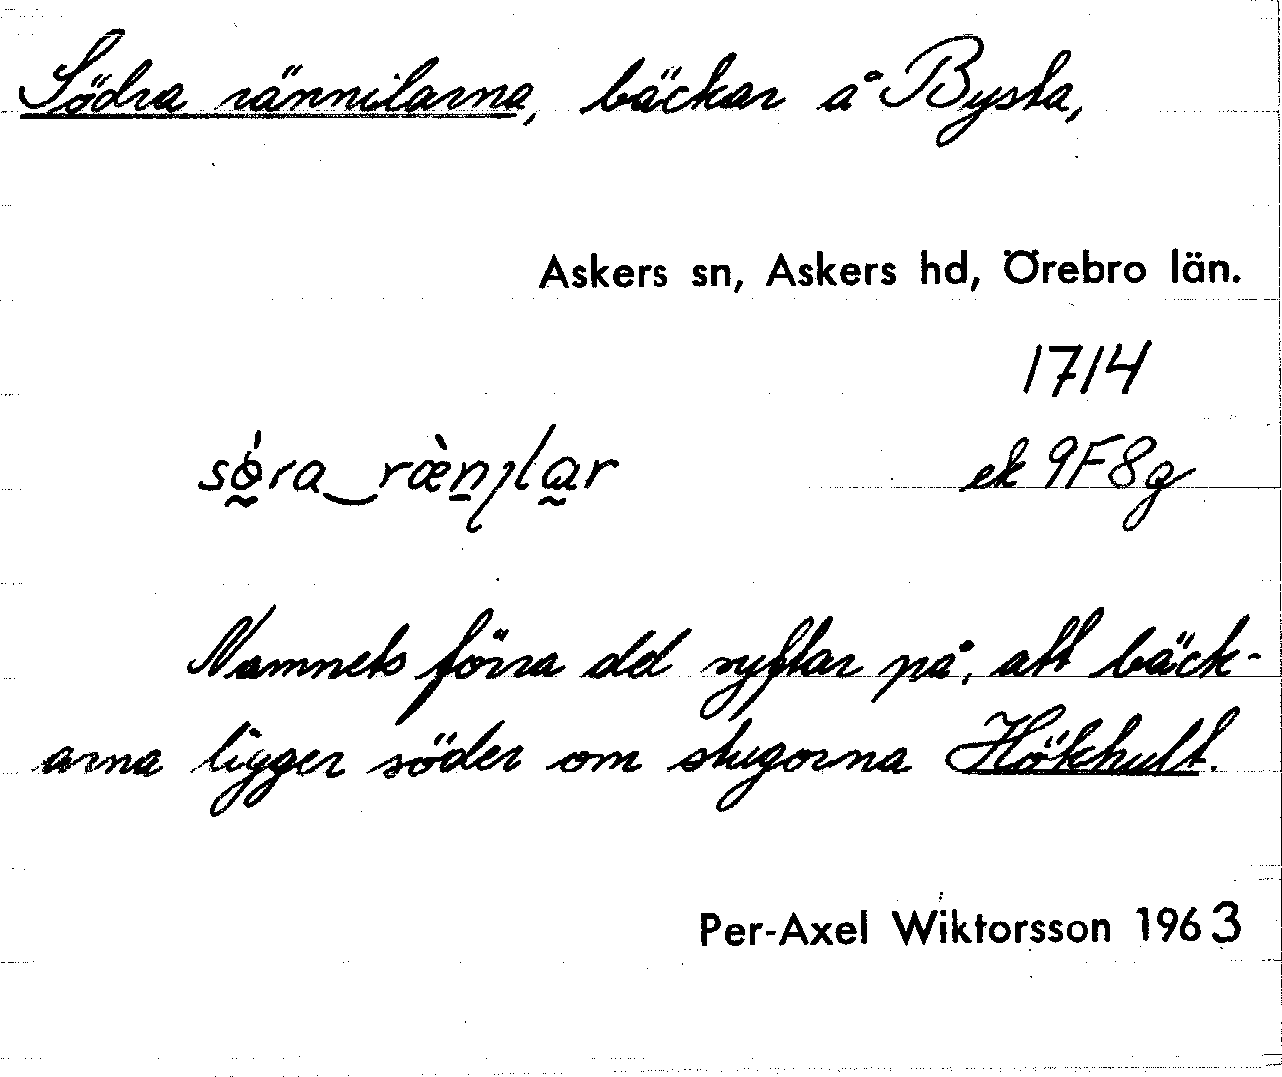 Södra rännilarna, bäckar å Bysta,
Askers sn, Askers hd, Örebro län.
1714
ek 9F8g
Namnets förra dd syftar på, att bäck-
arna ligger söder om stugorna Hökhult.
Per-Axel Wiktorsson 1963